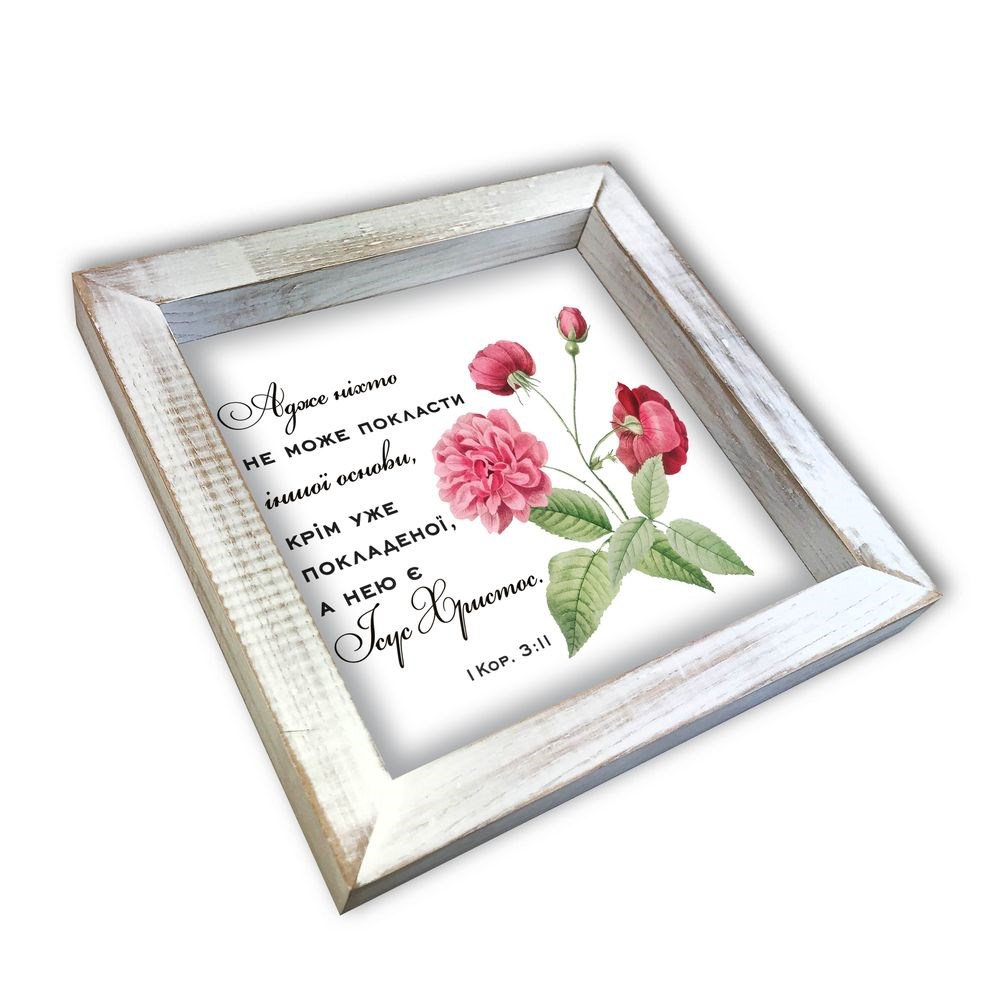 Адже ніхто
не може покласти
іншої основи,
крім уже
покладеної,
а нею є
Ісус Христос.
1 Кор. 3:11